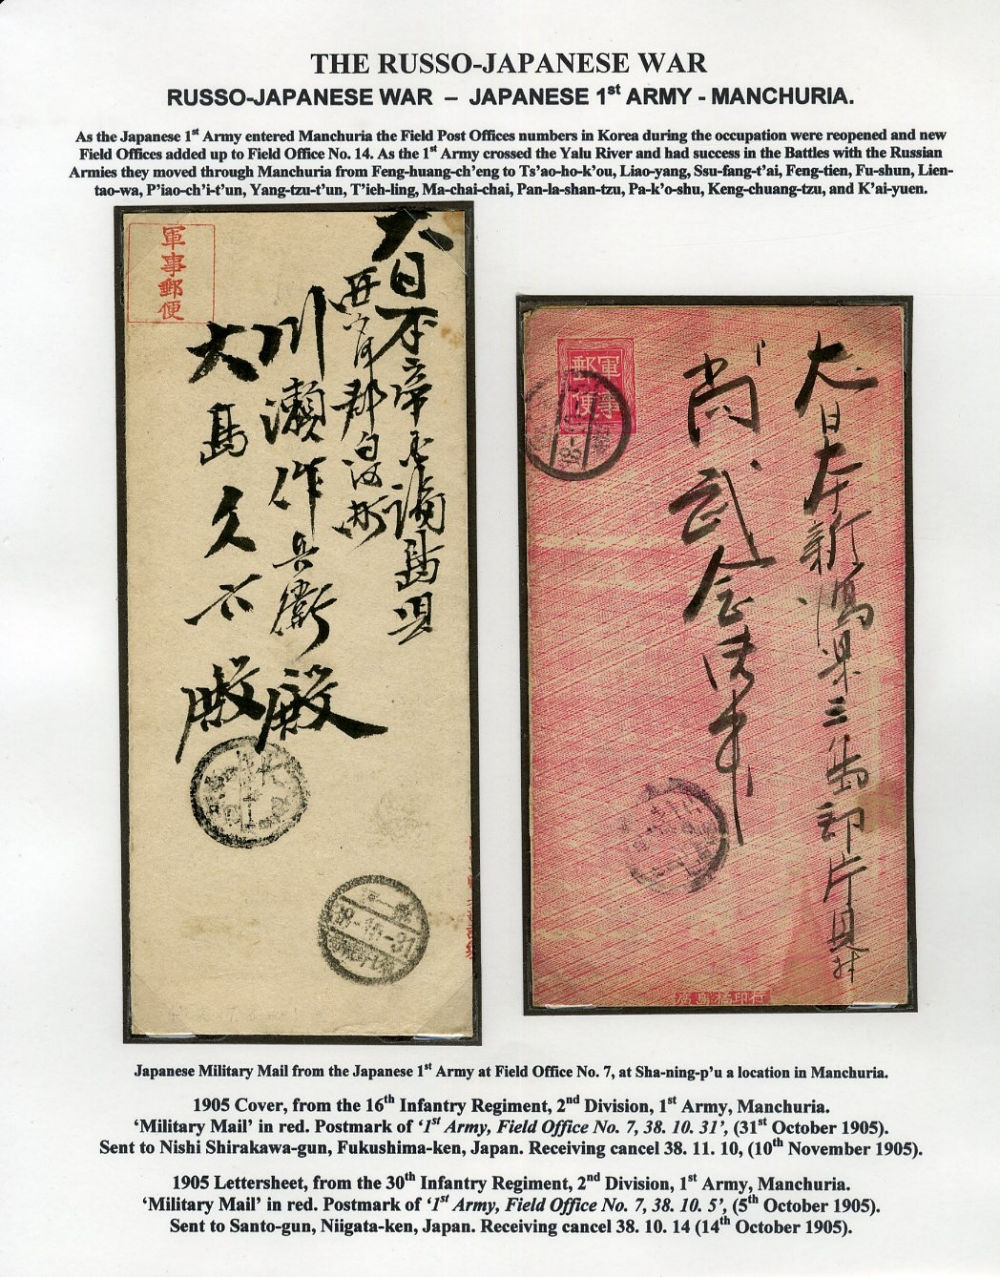 THE RUSSO-JAPANESE WAR
RUSSO-JAPANESE WAR – JAPANESE 1st ARMY - MANCHURIA.
As the Japanese 1st Army entered Manchuria the Field Post Offices numbers in Korea during the occupation were reopened and new
Field Offices added up to Field Office No. 14. As the 1st Army crossed the Yalu River and had success in the Battles with the Russian
Armies they moved through Manchuria from Feng-huang-ch'eng to Ts'ao-ho-k'ou, Liao-yang, Ssu-fang-t'ai, Feng-tien, Fu-shun, Lien-
tao-wa, P'iao-ch'i-t'un, Yang-tzu-t'un, T'ieh-ling, Ma-chai-chai, Pan-la-shan-tzu, Pa-k'o-shu, Keng-chuang-tzu, and K'ai-yuen.
軍事郵便
大日本帝国福島県
西白河郡白河町
川瀬作兵衛殿
大島久六殿
38-10-31
軍事郵便
大日本新潟県三島郡片貝村
尚武会
Japanese Military Mail from the Japanese 1st Army at Field Office No. 7, at Sha-ning-p'u a location in Manchuria.
1905 Cover, from the 16th Infantry Regiment, 2nd Division, 1st Army, Manchuria.
'Military Mail' in red. Postmark of '1st Army, Field Office No. 7, 38. 10. 31', (31st October 1905).
Sent to Nishi Shirakawa-gun, Fukushima-ken, Japan. Receiving cancel 38. 11. 10, (10th November 1905).
1905 Lettersheet, from the 30th Infantry Regiment, 2nd Division, 1st Army, Manchuria.
'Military Mail' in red. Postmark of '1st Army, Field Office No. 7, 38. 10. 5', (5th October 1905).
Sent to Santo-gun, Niigata-ken, Japan. Receiving cancel 38. 10. 14 (14th October 1905).